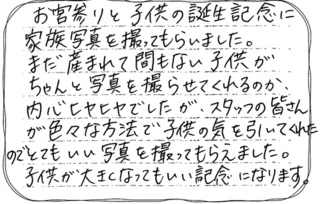 お宮参りと子供の誕生記念に
家族写真を撮ってもらいました。
まだ産まれて間もない子供が
ちゃんと写真を撮らせてくれるのか、
内心ヒヤヒヤでしたが、スタッフの皆さん
が色々な方法で子供の気を引いてくれた
のでとてもいい写真を撮ってもらえました。
子供が大きくなってもいい記念になります。